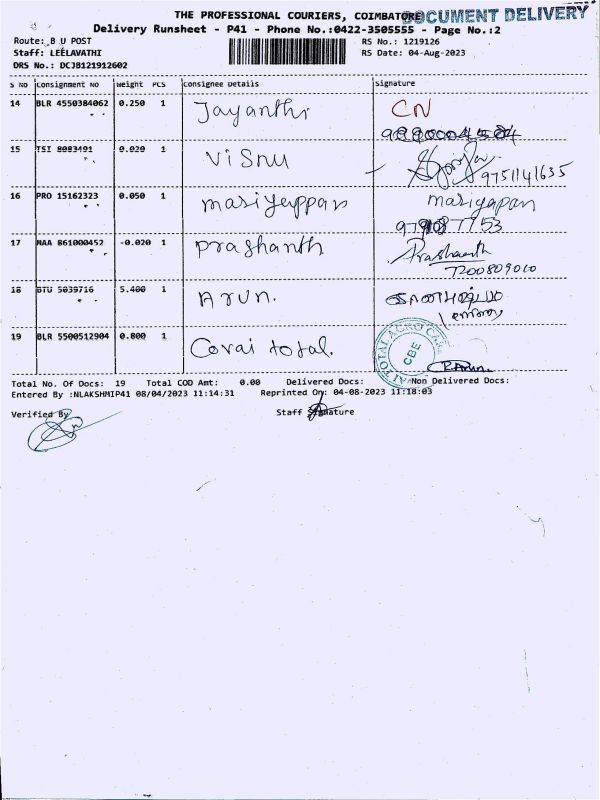 THE PROFESSIONAL COURIERS, COIMBATORE DOCUMENT DELIVERY
Delivery Runsheet - P41 - Phone No.:0422-3505555 - Page No.:2
Route: B U POST RS No.: 1219126
Staff: LEELAVATHI RS Date: 04-Aug-2023
DRS No.: DCJB121912602
S NO Consignment No Weight PCS Consignee Details Signature
14 BLR 4550384062 0.250 1 Jayanthi CN
15 TSI 8083491 0.020 1 Visnu
9751141635
16 PRO 15162323 0.050 1 mariyappan mariyapan
17 MAA 861000452 -0.020 1 Prashanth Prashanth
7200809010
18 GTU 5039716 5.400 1 Arun.
19 BLR 5500512904 0.800 1 Covai total.
TOTAL AGRO CBE
Total No. Of Docs: 19 Total COD Amt: 0.00 Delivered Docs: Non Delivered Docs:
Entered By :NLAKSHMIP41 08/04/2023 11:14:31 Reprinted On: 04-08-2023 11:18:03
Verified By Staff Signature